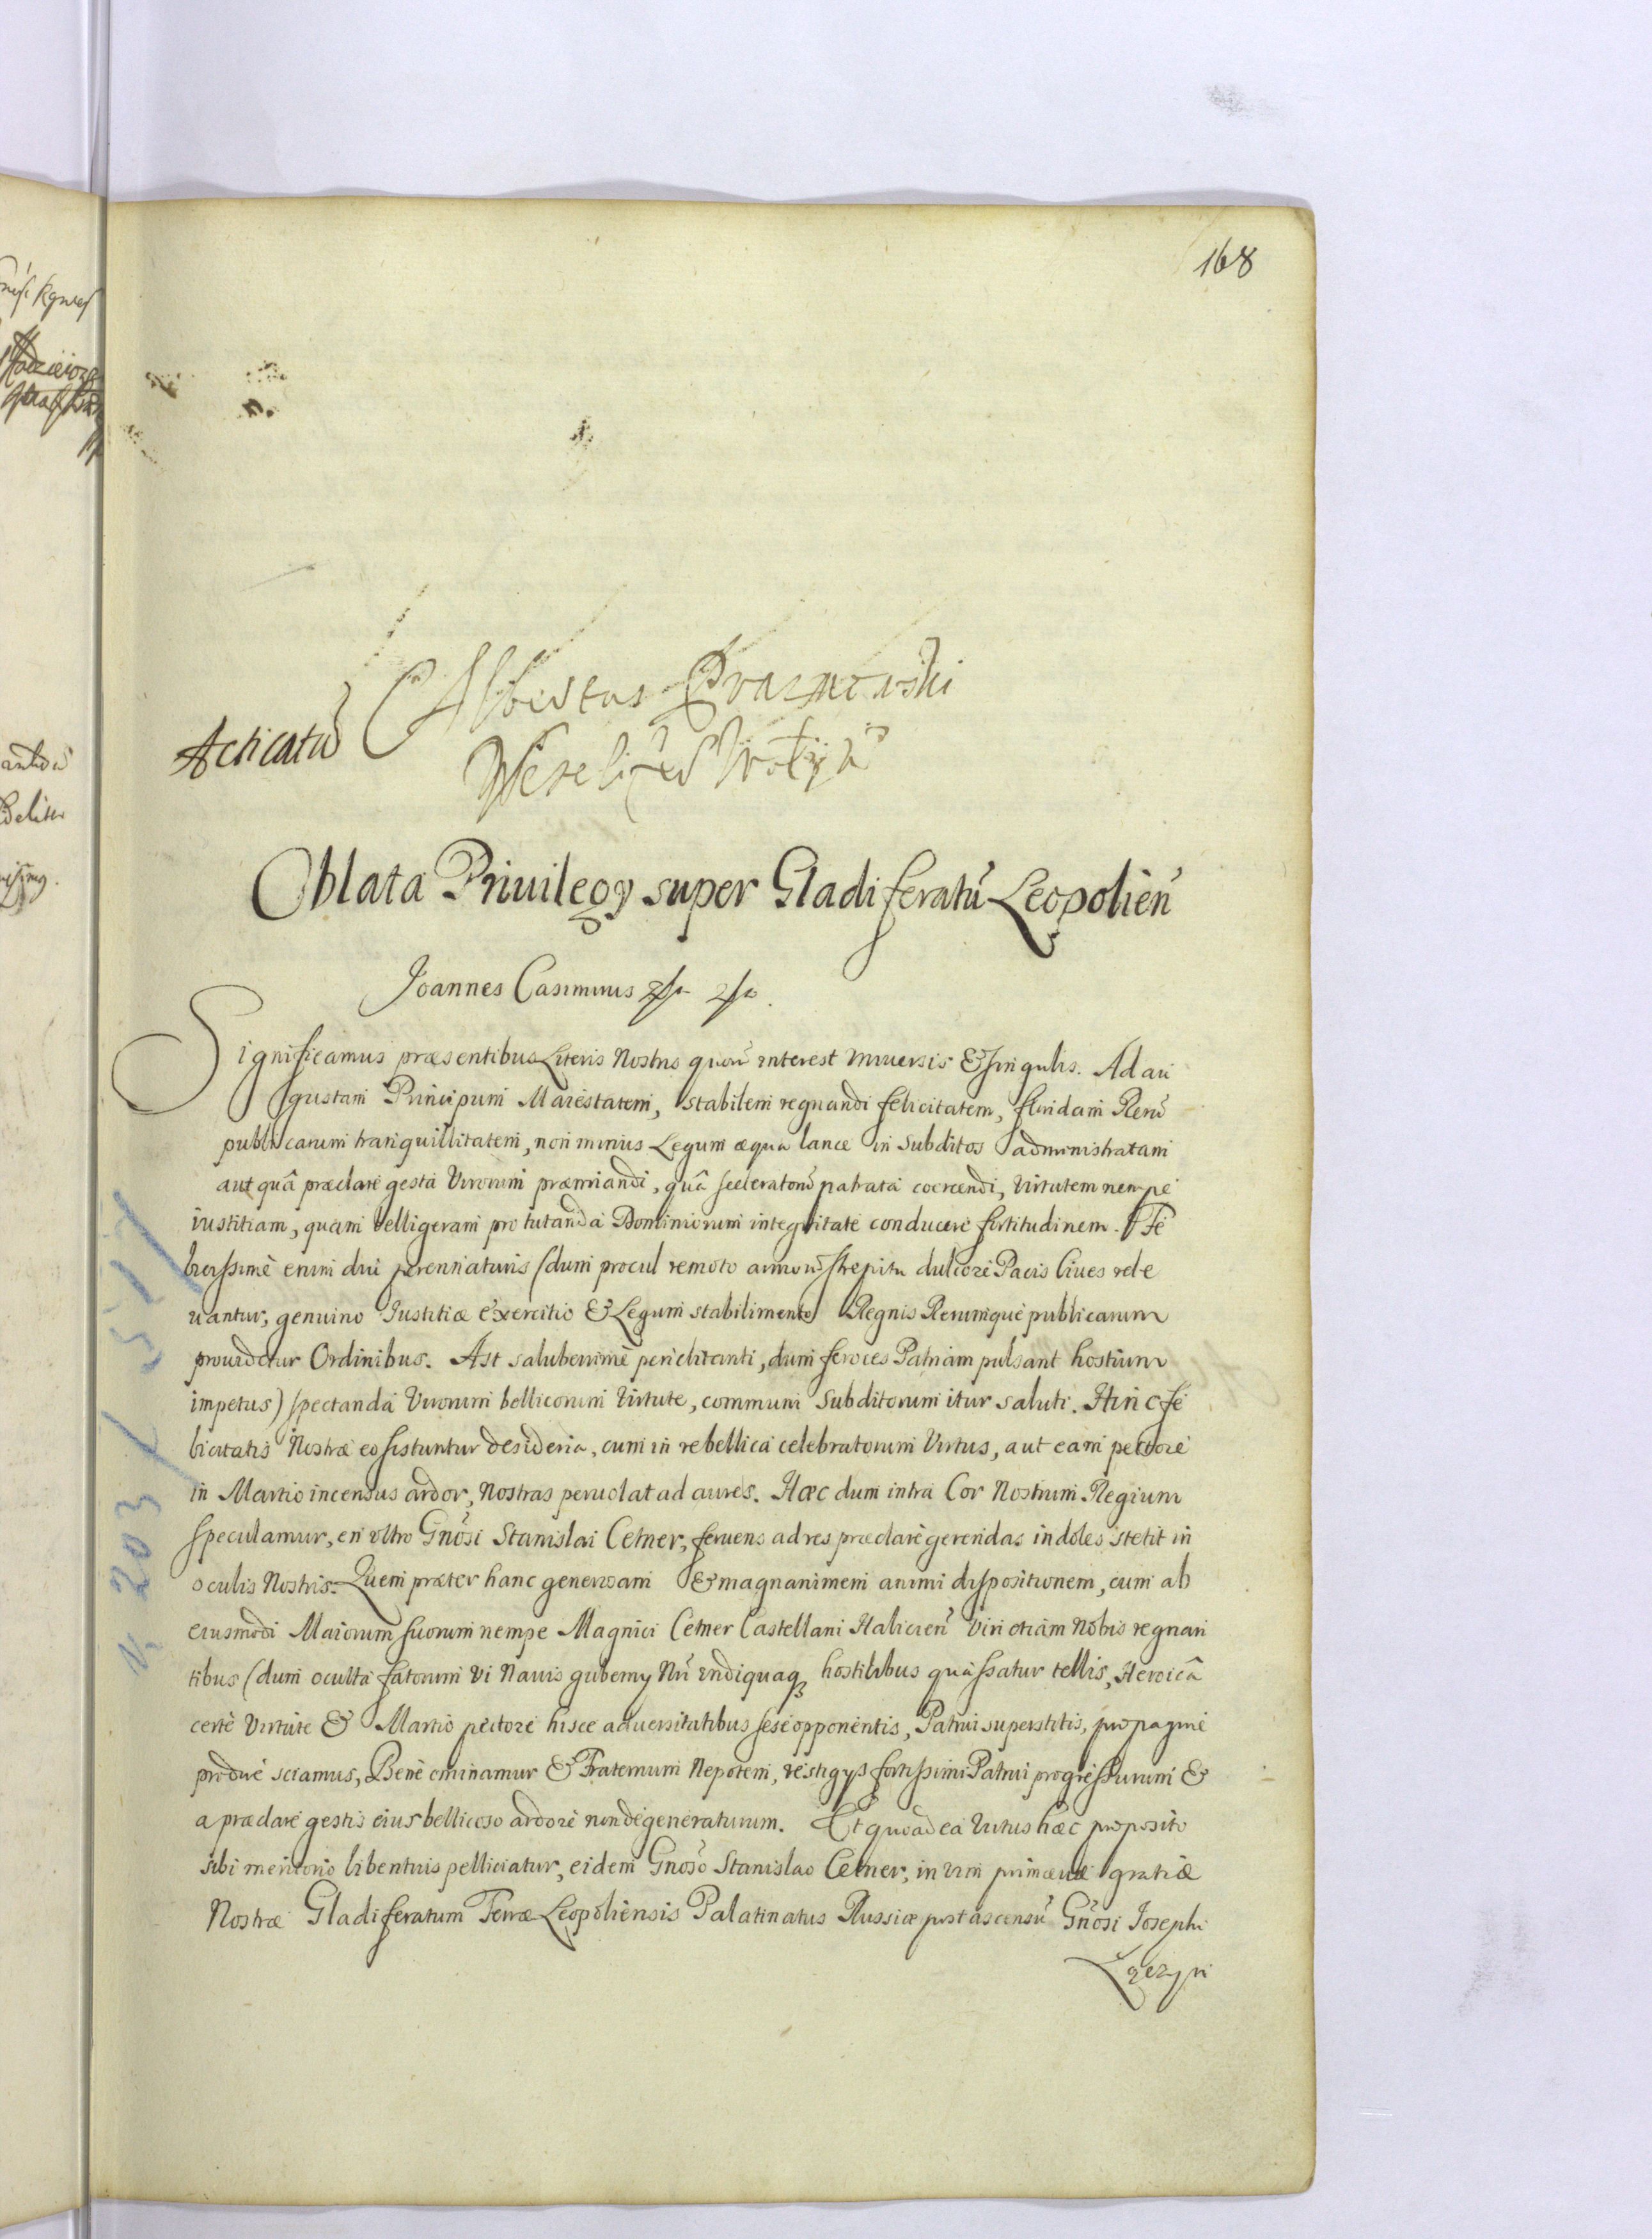 168
Acticatū
Albertus Prazmowski
Oblata Priuilegy super Gladiferatū Leopolień
Joannes Casimirus
Significamus præsentibus Literis Nostris quorū interest vniuersis & singulis. Ad au
gustam Principum Maiestatem, stabilem regnandi felicitatem, floridam Rerū
publicarum tranquillitatem, non minus Legum æqua lance in subditos administratam
aut quâ præclare gesta Virorum præmiandi, quâ sceleratorū patrata coercendi, virtutem nempe
iustitiam, quam belligeram pro tutanda Dominiorum integritate conducere fortitudinem. Fe
licissimè enim diu perennaturis (dum procul remoto armorū strepitu dulcore Pacis Ciues rele
uantur, genuino Justitiæ exercitio & Legum stabilimento Regnis Rerumque publicarum
prouidetur Ordinibus. Ast saluberrimè periclitanti, dum feroces Patriam pulsant hostium
impetus) spectanda Virorum bellicorum Virtute, communi subditorum itur saluti. Hinc fe
licitatis Nostræ eo sistuntur desideria, cum in re bellica celebratorum Virtus, aut eam pectore
in Martio incensus ardor, Nostras peruolat ad aures. Hæc dum intra Cor Nostrum Regium
speculamur, en vltro Gnōsi Stanislai Cetner, feruens ad res præclare gerendas indoles stetit in
oculis Nostris. Quem præter hanc generosam & magnanimem animi dispositionem, cum ab
eiusmodi Maiorum suorum nempe Magnici Cetner Castellani Halicień Viri etiam Nobis regnan
tibus (dum oculta fatorum vi Nauis guberny Nri vndiquaq3 hostilibus quassatur tellis, Heroicâ
certè Virtute & Martio pectore hisce aduersitatibus sese opponentis, Patrui superstitis, propagine
prodire sciamus, Bene ominamur & Fraternum Nepotem, vestigys fortissimi Patrui progressurum &
a præclare gestis eius bellicoso ardore non degeneraturum. Et quo ad ea Virtus hæc proposito
sibi meritorio libentius pelliciatur, eidem Gnōso Stanislao Cetner, in vim primæuæ gratiæ
Nostræ Gladiferatum Terræ Leopoliensis Palatinatus Russiæ post ascensū Gnōsi Josephi
Łączyn